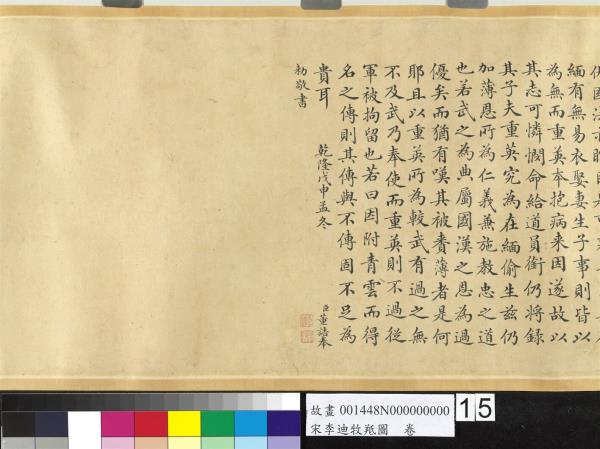 緬有無易衣娶妻生子事則皆以
為無而重英本抱病来因遂故以
其志可憐憫命給道員銜仍將録
其子夫重英究為在緬偷生茲仍
加薄恩所為仁義兼施教忠之道
也若武之為典屬國漢之恩為過
優矣而猶有嘆其被賚薄者是何
耶且以重英所為較武有過之無
不及武乃奉使而重英則不過從
軍被拘留也若曰因附青雲而得
名之傳則其傳與不傳固不足為
貴耳
乾隆戊申孟冬
臣董誥奉
勅敬書
故畫 001448N000000000
宋李迪牧羝圖 卷
15